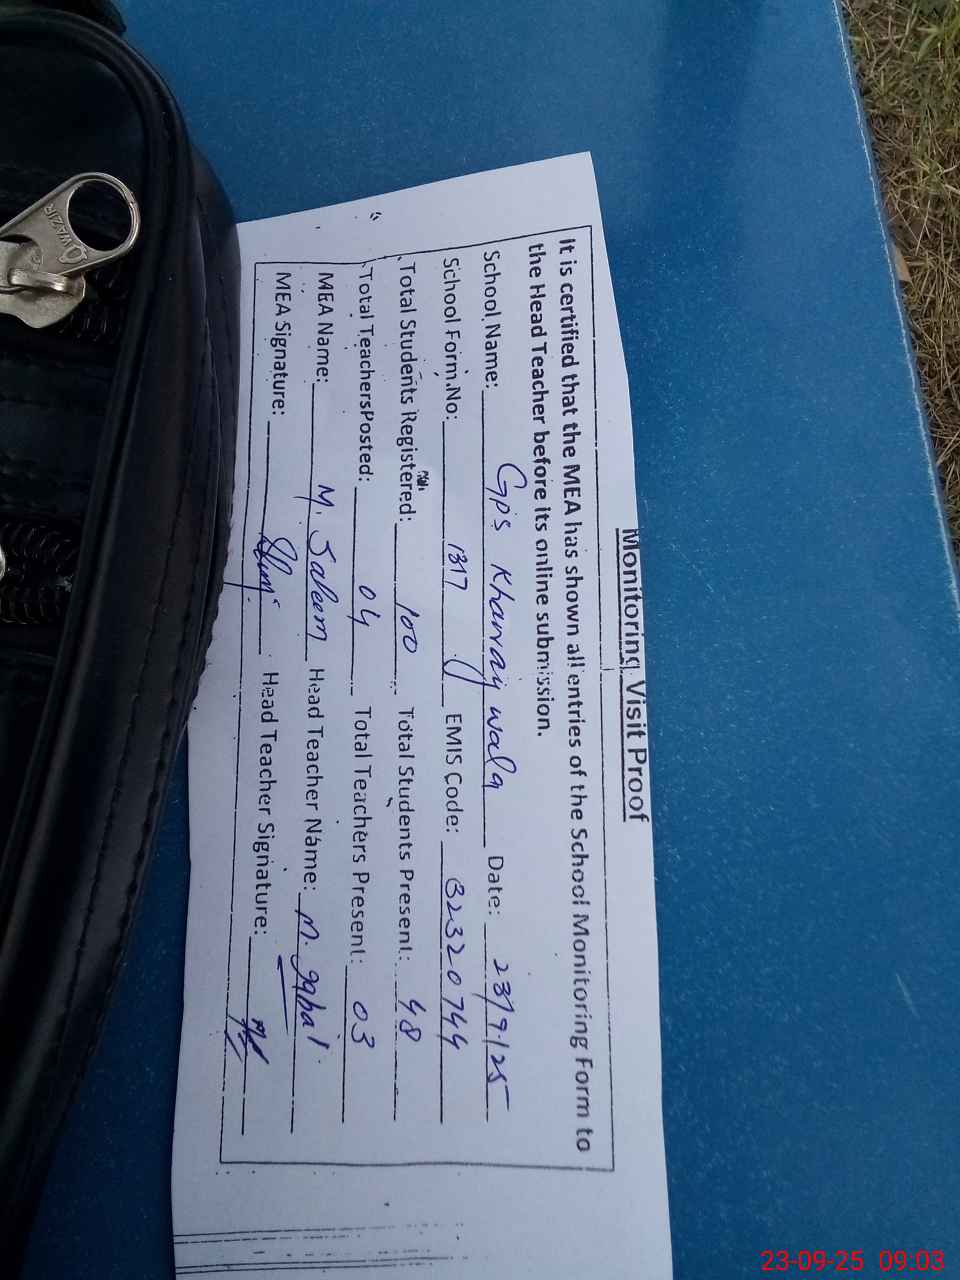 Monitoring Visit Proof
It is certified that the MEA has shown all entries of the School Monitoring Form to
the Head Teacher before its online submission.
School Name: GPS Kharray wala Date: 23/9/25
School Form.No: 1317 EMIS Code: 32320744
Total Students Registered: 100 Total Students Present: 48
Total TeachersPosted: 04 Total Teachers Present: 03
MEA Name: M. Saleem Head Teacher Name: M. Iqbal
MEA Signature: Head Teacher Signature:
WAZIR
23-09-25 09:03